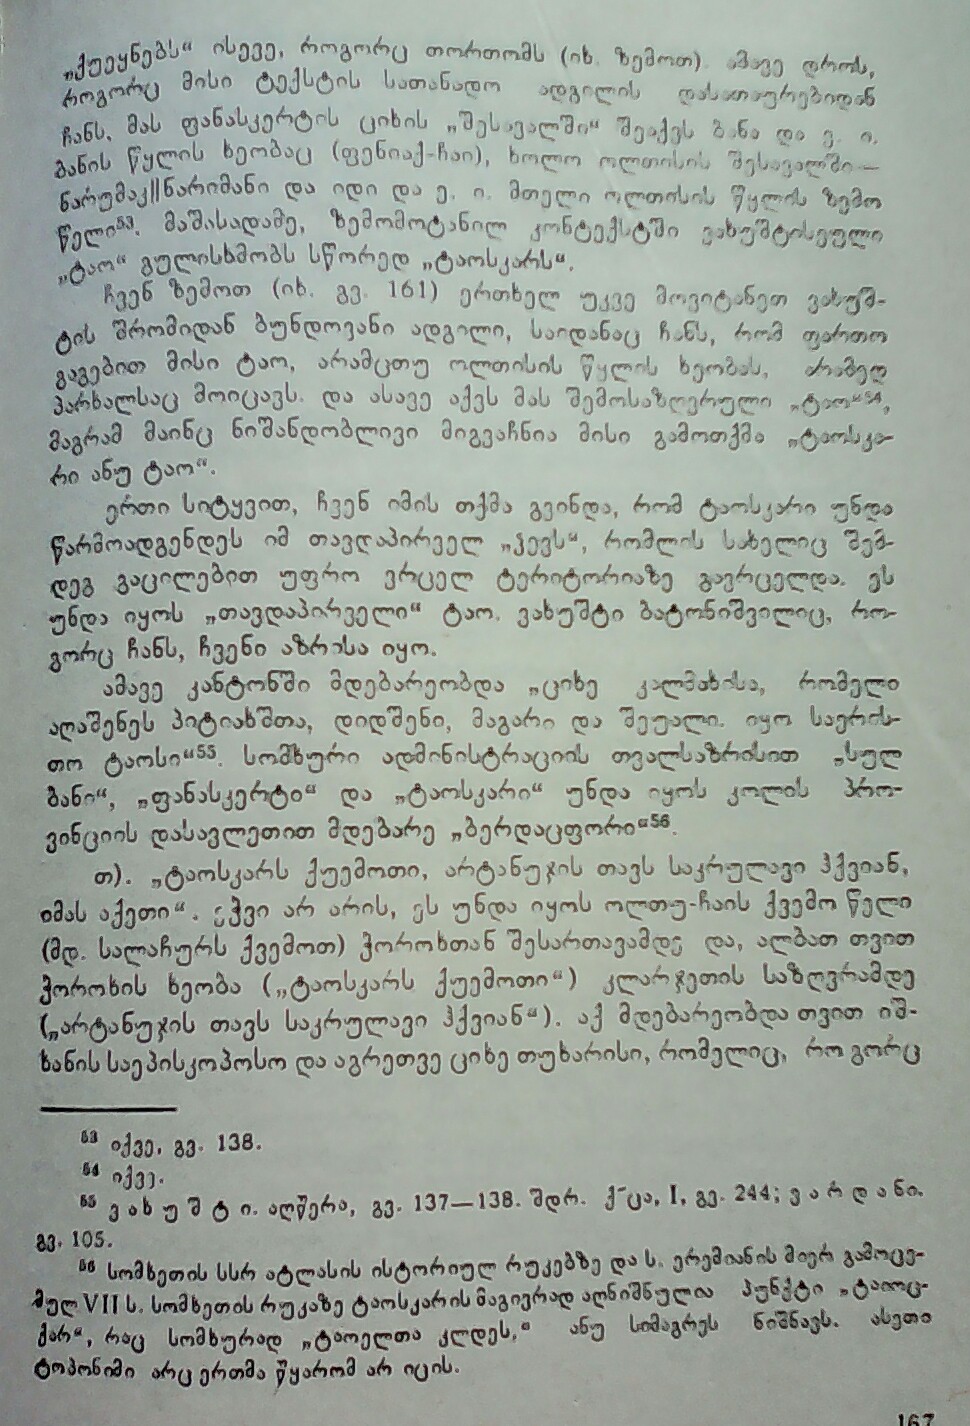 „ქუეყნებს“ ისევე, როგორც თორთომს (იხ. ზემოთ). ამავე დროს,
როგორც მისი ტექსტის სათანადო ადგილის დასათაურებიდან
ჩანს, მას ფანასკერტის ციხის „შესავალში“ შეაქვს ბანა და ე. ი.
ბანის წყლის ხეობაც (ფენიაქ-ჩაი), ხოლო ოლთისის შესავალში—
ნარუმაკ||ნარიმანი და იდი და ე. ი. მთელი ოლთისის წყლის ზემო
წელი⁵³. მაშასადამე, ზემომოტანილ კონტექსტში ვახუშტისეული
„ტაო“ გულისხმობს სწორედ „ტაოსკარს“.
ჩვენ ზემოთ (იხ. გვ. 161) ერთხელ უკვე მოვიტანეთ ვახუშ-
ტის შრომიდან ბუნდოვანი ადგილი, საიდანაც ჩანს, რომ ფართო
გაგებით მისი ტაო, არამცთუ ოლთისის წყლის ხეობას, არამედ
პარხალსაც მოიცავს. და ასავე აქვს მას შემოსაზღვრული „ტაო“⁵⁴,
მაგრამ მაინც ნიშანდობლივი მიგვაჩნია მისი გამოთქმა „ტაოსკა-
რი ანუ ტაო“.
ერთი სიტყვით, ჩვენ იმის თქმა გვინდა, რომ ტაოსკარი უნდა
წარმოადგენდეს იმ თავდაპირველ „ჴევს“, რომლის სახელიც შემ-
დეგ გაცილებით უფრო ვრცელ ტერიტორიაზე გავრცელდა. ეს
უნდა იყოს „თავდაპირველი“ ტაო. ვახუშტი ბატონიშვილიც, რო-
გორც ჩანს, ჩვენი აზრისა იყო.
ამავე კანტონში მდებარეობდა „ციხე კალმახისა, რომელი
აღაშენეს პიტიახშთა, დიდშენი, მაგარი და შეუალი. იყო საერის-
თო ტაოსი“⁵⁵. სომხური ადმინისტრაციის თვალსაზრისით „სულ
ბანი“, „ფანასკერტი“ და „ტაოსკარი“ უნდა იყოს კოლის პრო-
ვინციის დასავლეთით მდებარე „ბერდაცფორი“⁵⁶.
თ). „ტაოსკარს ქუემოთი, არტანუჯის თავს საკრულავი ჰქვიან,
იმას აქეთი“. ეჭვი არ არის, ეს უნდა იყოს ოლთუ-ჩაის ქვემო წელი
(მდ. სალაჩურს ქვემოთ) ჭოროხთან შესართავამდე და, ალბათ თვით
ჭოროხის ხეობა („ტაოსკარს ქუემოთი“) კლარჯეთის საზღვრამდე
(„არტანუჯის თავს საკრულავი ჰქვიან“). აქ მდებარეობდა თვით იშ-
ხანის საეპისკოპოსო და აგრეთვე ციხე თუხარისი, რომელიც, რო გორც
⁵³ იქვე, გვ. 138.
⁵⁴ იქვე.
⁵⁵ ვ ა ხ უ შ ტ ი. აღწერა, გვ. 137—138. შდრ. ქ˜ცა, I, გვ. 244; ვ ა რ დ ა ნ ი.
გვ. 105.
⁵⁶ სომხეთის სსრ ატლასის ისტორიულ რუკებზე და ს. ერემიანის მიერ გამოცე-
მულ VII ს. სომხეთის რუკაზე ტაოსკარის მაგივრად აღნიშნულია პუნქტი „ტაიოც-
ქარ“, რაც სომხურად „ტაოელთა კლდეს,“ ანუ სიმაგრეს ნიშნავს. ასეთი
ტოპონიმი არც ერთმა წყარომ არ იცის.
167